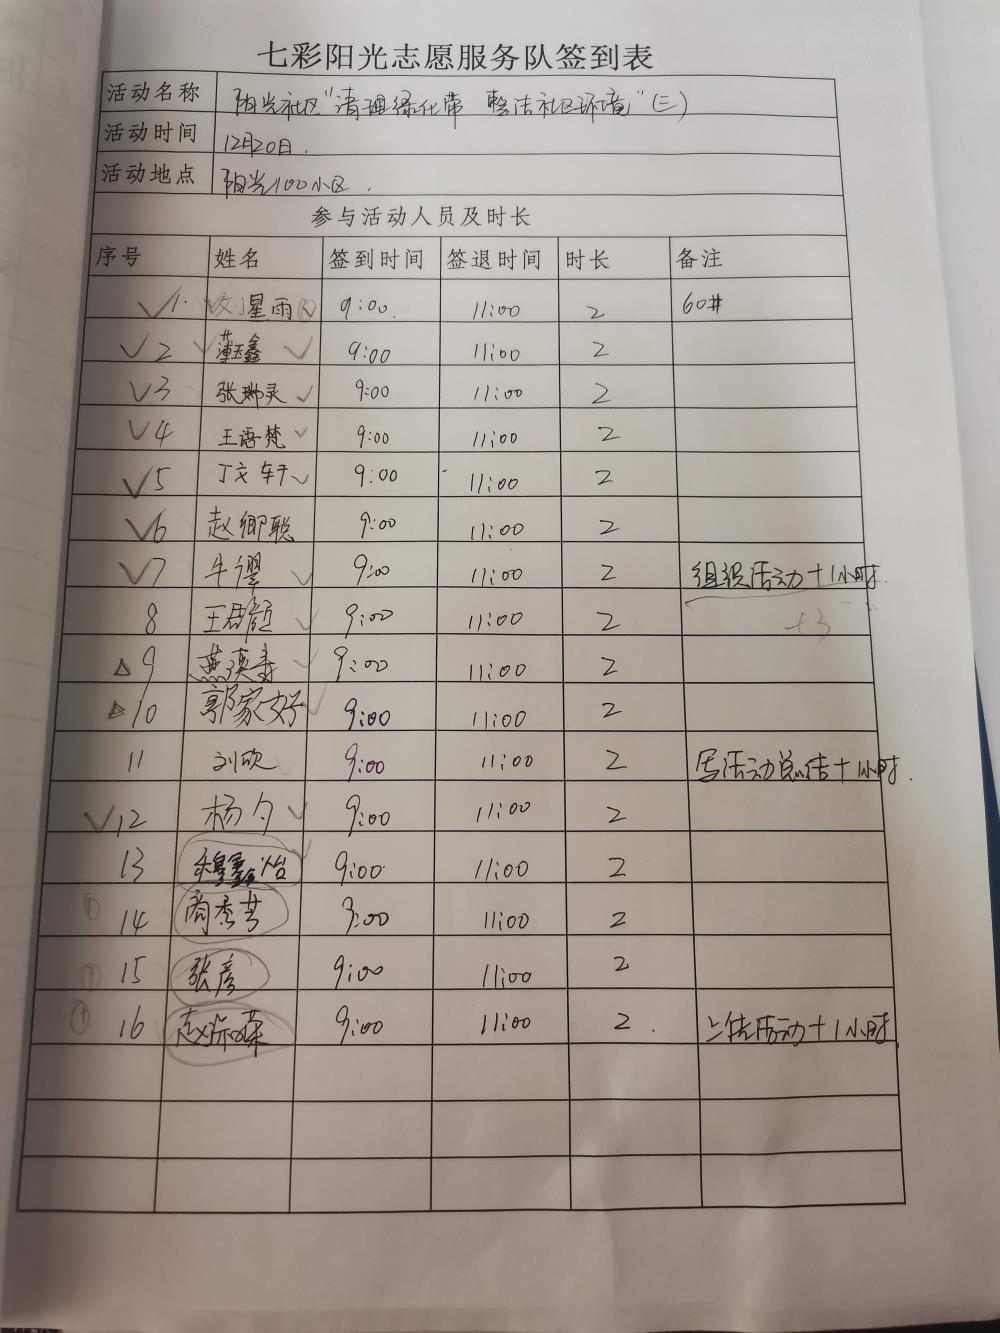 七彩阳光志愿服务队签到表
活动名称 阳光社区"清理绿化带 整洁社区环境"(三)
活动时间 12月20日.
活动地点 阳光100小区.
参与活动人员及时长
序号 姓名 签到时间 签退时间 时长 备注
1. 刘星雨 9:00. 11:00 2 60#
2 薄玉鑫 9:00 11:00 2
3 张琳灵 9:00 11:00 2
4 王语梵 9:00 11:00 2
5 丁文轩 9:00 11:00 2
6 赵卿聪 9:00 11:00 2
7 牛 9:00 11:00 2 组织活动+1小时.
8 王君颜 9:00 11:00 2 +3
9 9:00 11:00 2
10 郭家好 9:00 11:00 2
11 刘欣 9:00 11:00 2 写活动总结+1小时.
12 杨夕 9:00 11:00 2
13 穆鑫怡 9:00 11:00 2
14 商秀芳 9:00 11:00 2
15 张彦 9:00 11:00 2
16 赵 9:00 11:00 2. 上传活动+1小时.